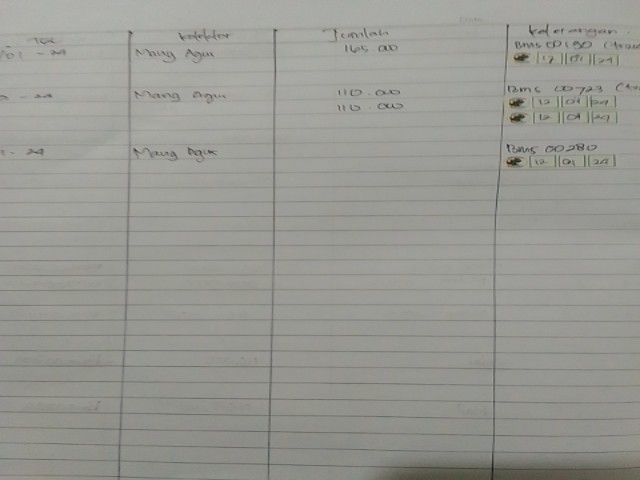 Tgl kolektor Jumlah keterangan
/01 - 24 Mang Agun 165.000 Bms 00150
12 01 24
- 24 Mang Agun 110.000 Bms 00723
110.000 12 01 24
12 01 24
- 24 Mang Agus Bms 00280
12 01 24